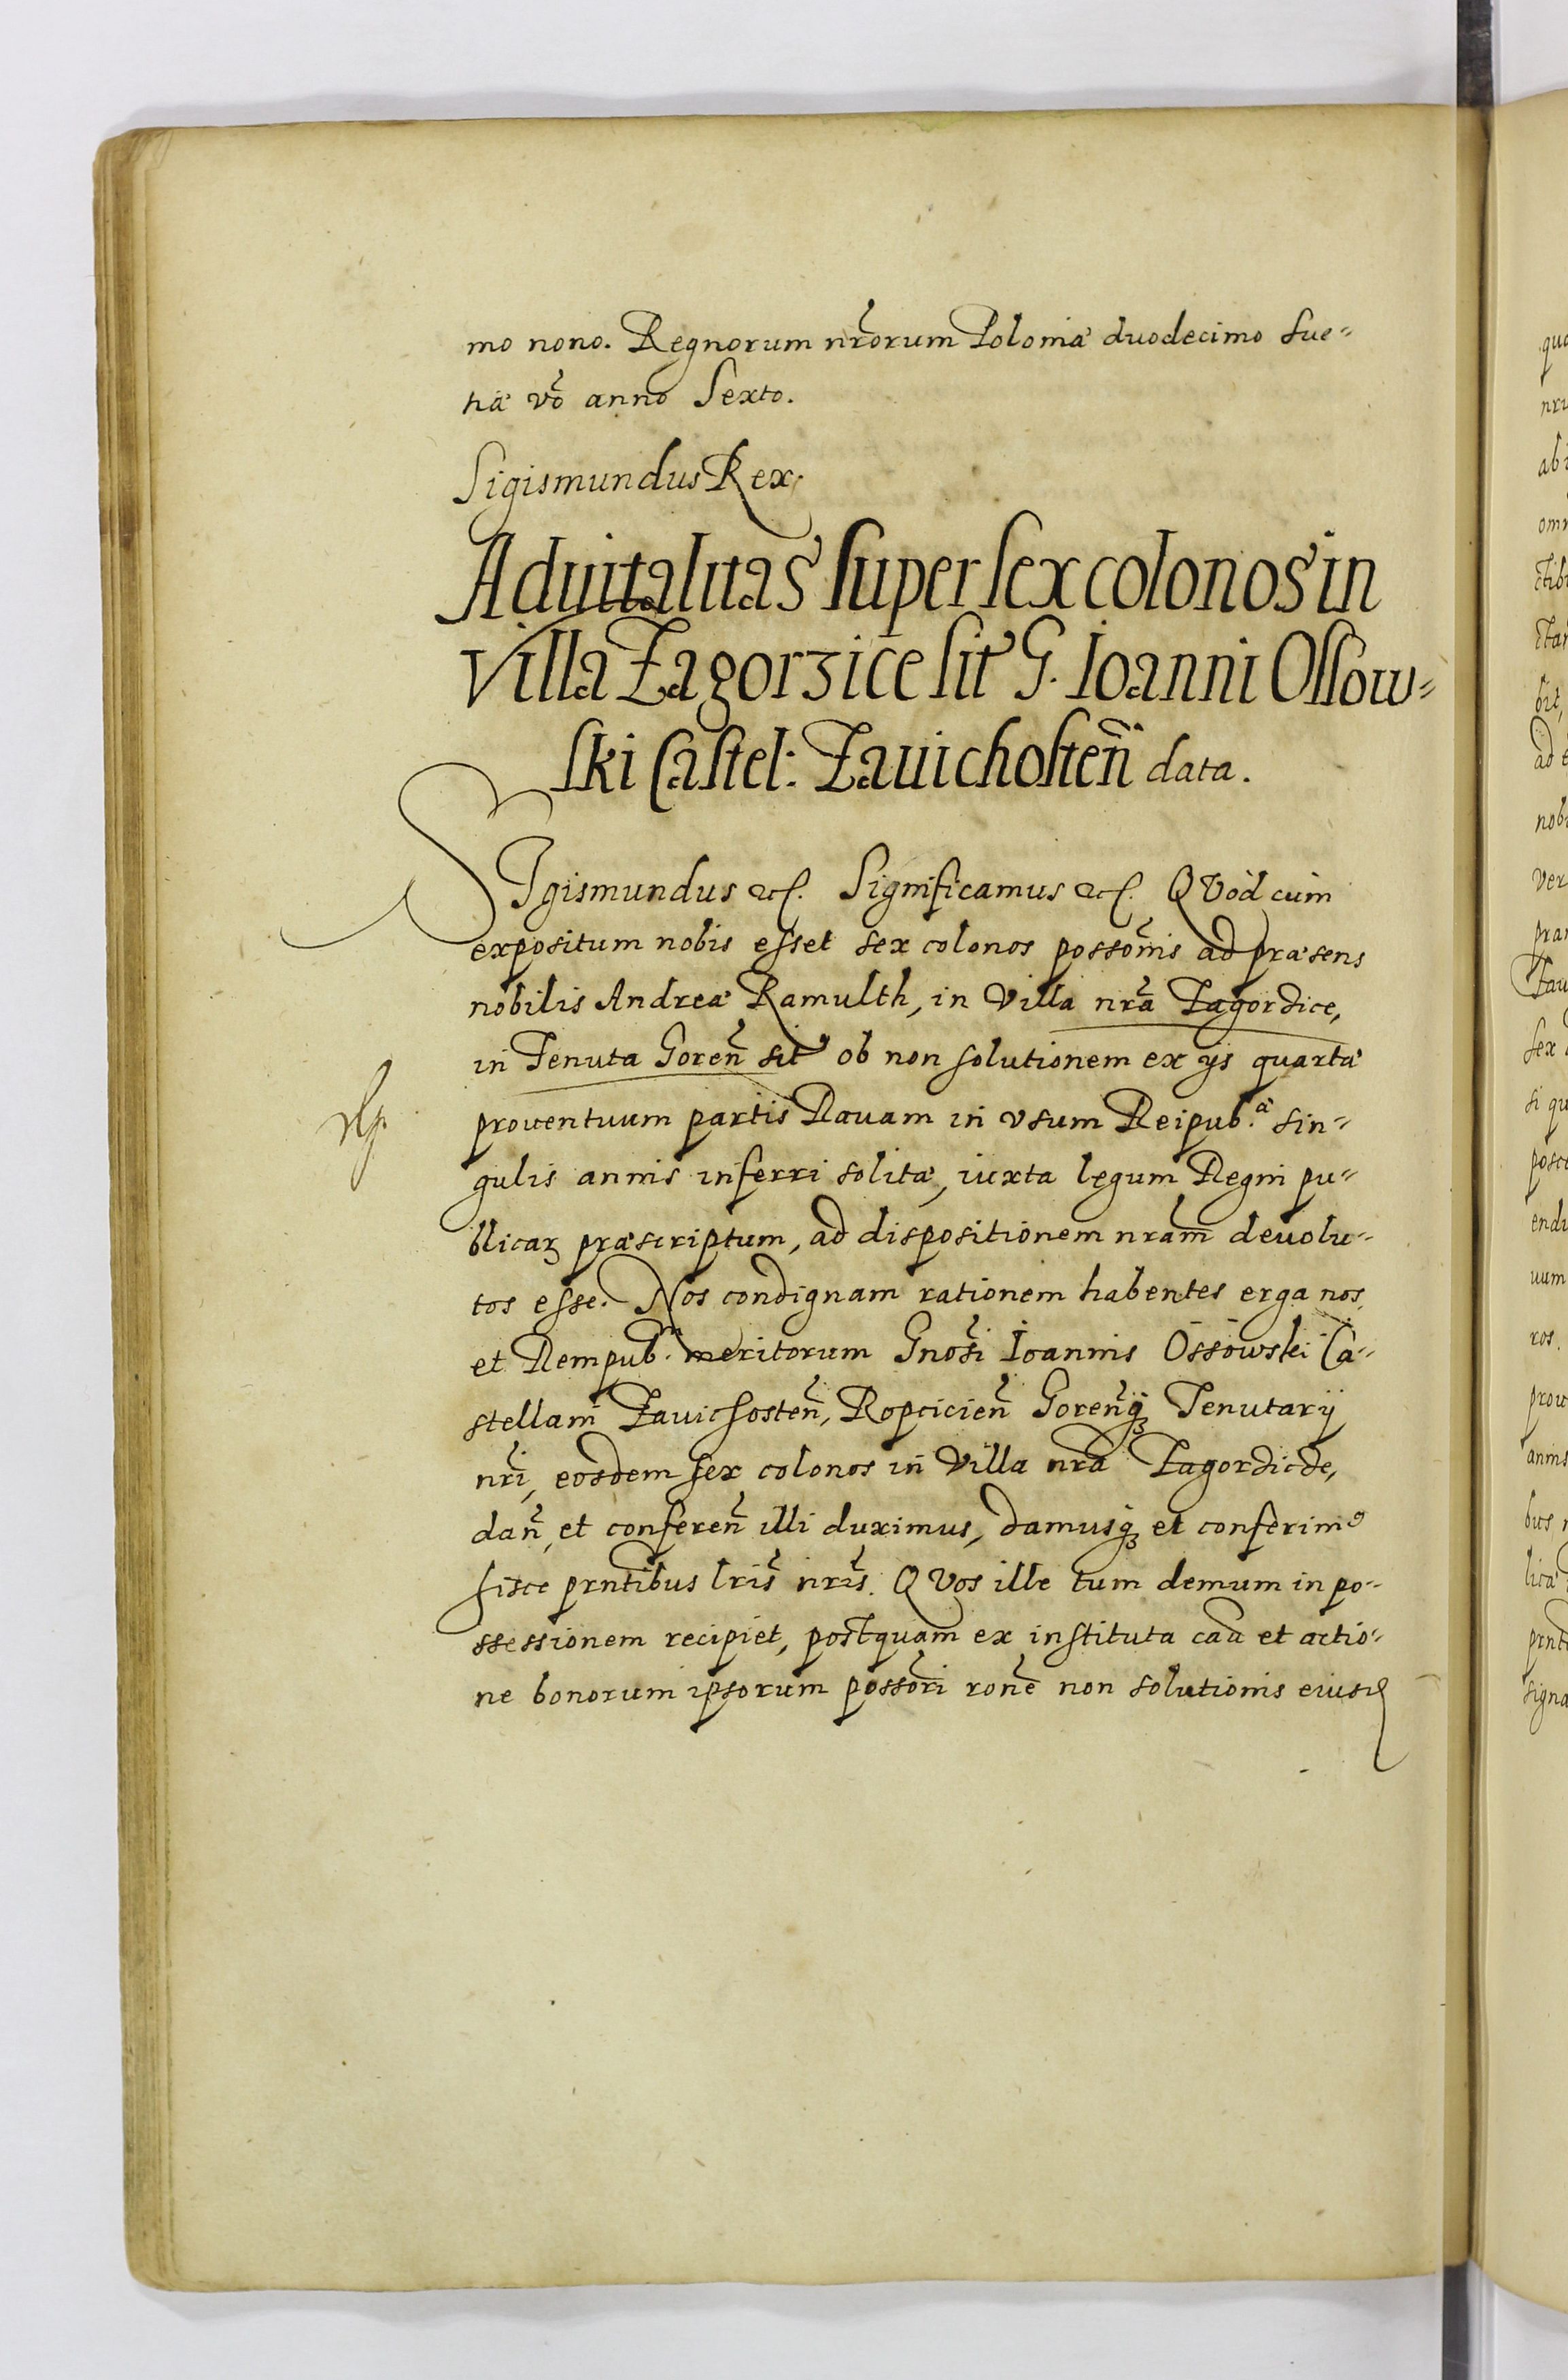 mo nono. Regnorum nrõrum Poloniæ duodecimo Sue=
tiæ võ anno Sexto.
Sigismundus Rex.
Aduitalitas super sex colonos in
Villa Zagorzice sit G. Ioanni Ossow=
ski Castel: Zauichosteñ data.
SIgismundus etc. Significamus etc. QVod cum
expositum nobis esset sex colonos possõnis ad præsens
nobilis Andreæ Ramulth, in Villa nrã Zagorzice,
in Tenuta Goreñ sit ob non solutionem ex ijs quartæ
prouentuum partis Rauam in vsum Reipub.æ sin=
gulis annis inferri solitæ, iuxta legum Regni pu=
blicaꝝ præscriptum, ad dispositionem nrãm deuolu=
tos esse. Nos condignam rationem habentes erga nos
et Rempub. meritorum Gnõsi Ioannis Ossowski Ca=
stellani Zauichosteñ, Ropcicieñ Goreñqꝫ Tenutarij
nrĩ, eosdem sex colonos in Villa nrã Zagorzicze,
dañ, et confereñ illi duximus, damusqꝫ et conferimꝰ
hisce prñtibus lrĩs nrĩs. QVos ille tum demum in po=
ssessionem recipiet, postquam ex instituta caã et actio=
ne bonorum ipsorum possõri rõne non solutionis eiusd